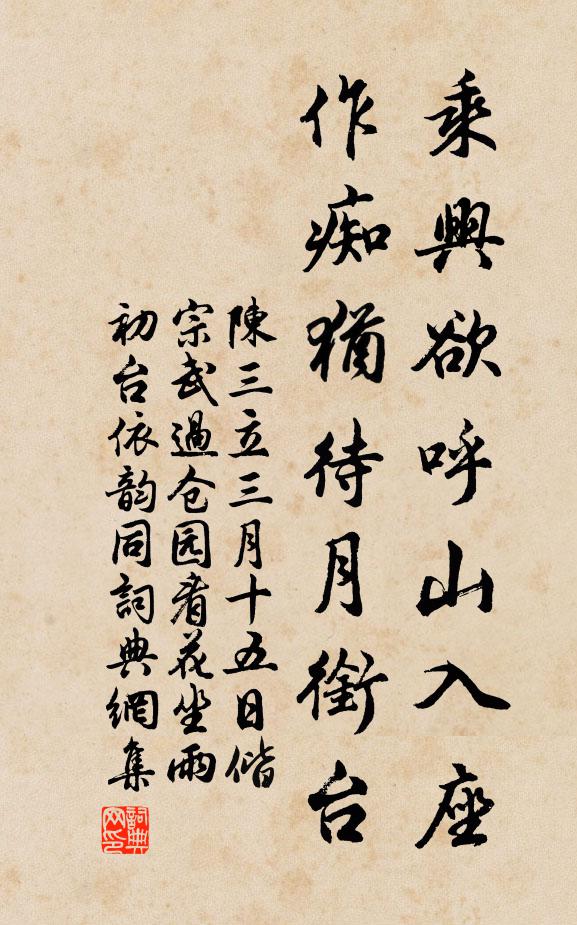 乘興欲呼山入座
作痴猶待月銜台
陳三立三月十五日偕
宗武過仓园看花坐雨
初台依韵同詞典網集
詞典网印